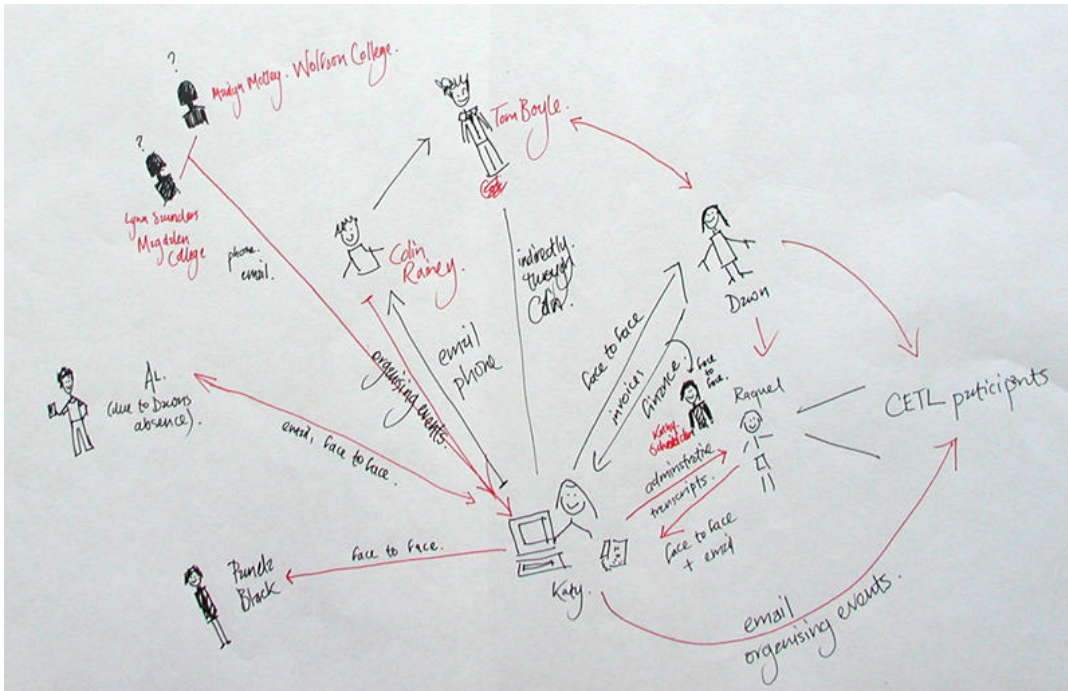 ?
Wolfson College.
?
Lynn Saunders
Magdalen
College
phone.
email.
Tom Boyle.
Colin
Ramey.
indirectly
through
Colin
email
phone
organising events.
face to face
invoices,
finance.
face
to
face.
Dawn
Raquel
CETL participants
AL.
(due to Dawns
absence).
email, face to face.
administrative
transcripts.
face to face
+ email
face to face.
Black
Katy.
email
organising events.